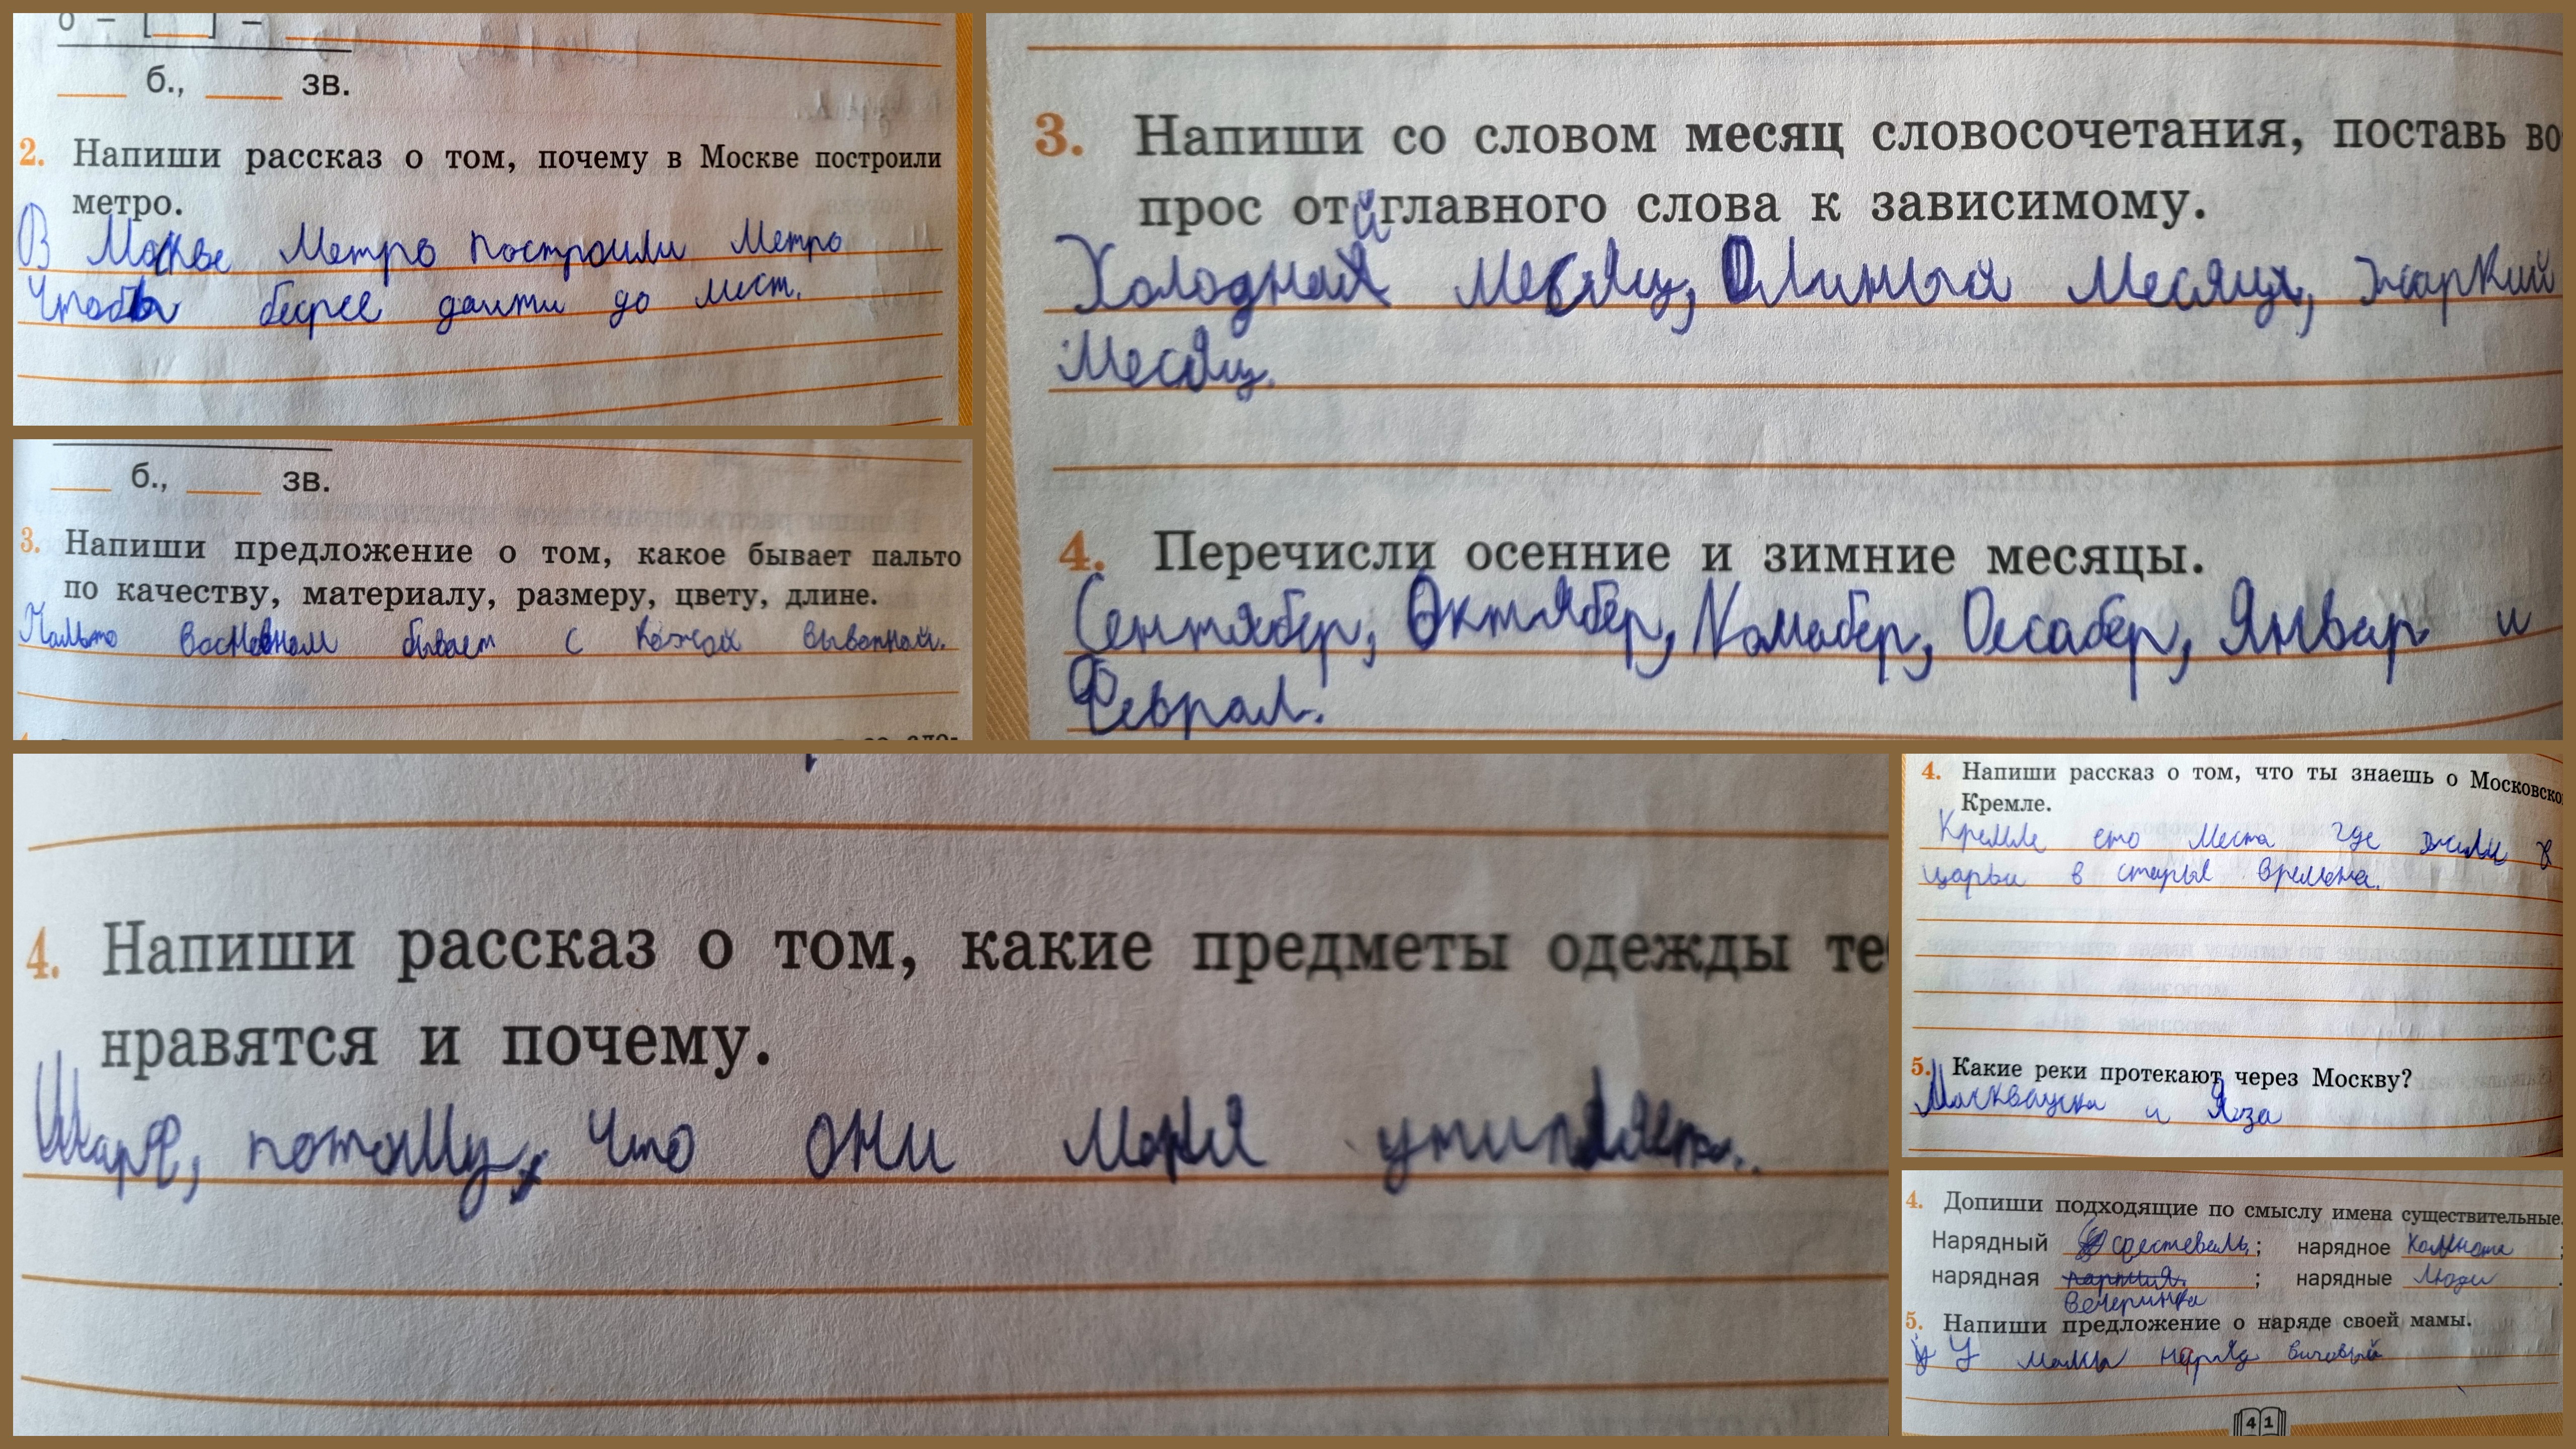 б., зв.
2. Напиши рассказ о том, почему в Москве построили
метро.
В Москве Метро построили Метро
Чтобы бсрее даити до мест.
б., зв.
3. Напиши предложение о том, какое бывает пальто
по качеству, материалу, размеру, цвету, длине.
Пальто восновном бывает с кожай
3. Напиши со словом месяц словосочетания, поставь во
прос от главного слова к зависимому.
Холоднай Месяц, Длиный Месяц, жаркий
Месяц.
4. Перечисли осенние и зимние месяцы.
Сентябер, Октябер, Децабер, Январ и
Феврал.
4. Напиши рассказ о том, какие предметы одежды те
нравятся и почему.
потому, что они
4. Напиши рассказ о том, что ты знаешь о Московско
Кремле.
Кремле ето Места где жили
царьи в старыя времена.
5. Какие реки протекают через Москву?
и Яуза
4. Допиши подходящие по смыслу имена существительные.
Нарядный фестеваль; нарядное ;
нарядная партия ; нарядные люди .
вечеринка
5. Напиши предложение о наряде своей мамы.
У мамы наряд
41